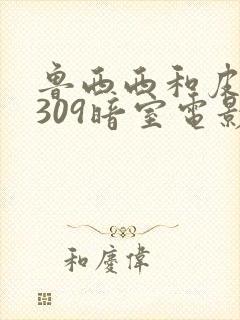 鲁西西和皮
309暗室电影
和慶偉